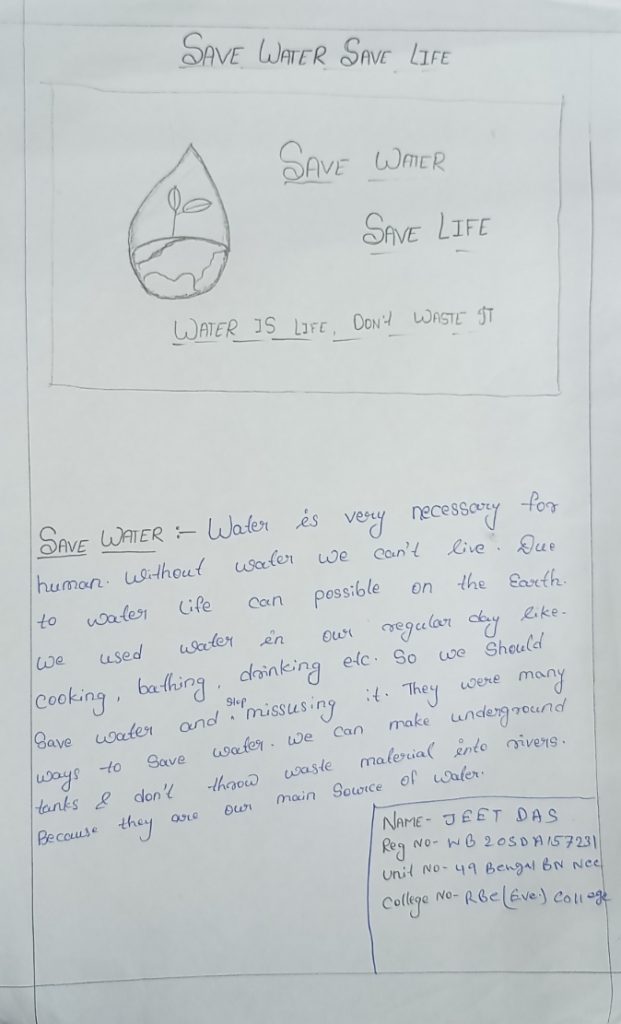 SAVE WATER SAVE LIFE
SAVE WATER
SAVE LIFE
WATER IS LIFE, DON'T WASTE IT
SAVE WATER :- Water is very necessary for
human. Without water we can't live. Due
to water life can possible on the Earth.
We used water in our regular day like-
cooking, bathing, drinking etc. So we should
Save water and stop missusing it. They were many
ways to Save water. We can make underground
tanks & don't throw waste material into rivers.
Because they are our main Source of water.
NAME- JEET DAS
Reg No- WB20SDA157231
Unit No- 49 Bengal BN NCC
College No- RBC(Eve.) College